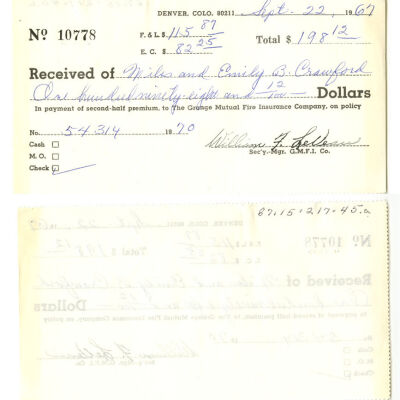 DENVER, COLO. 80211 Sept. 22, 1967
Nº 10778 F. & L. $ 115 87 Total $ 198 12
E. C. $ 82 25
Received of Milo and Emily B. Crawford
One hundred ninety-eight and 12/100 Dollars
In payment of second-half premium, to The Grange Mutual Fire Insurance Company, on policy
No. 54314 1970
Cash
M. O. William F.
Check Sec'y.-Mgr. G.M.F.I. Co.
67.15+217+45.